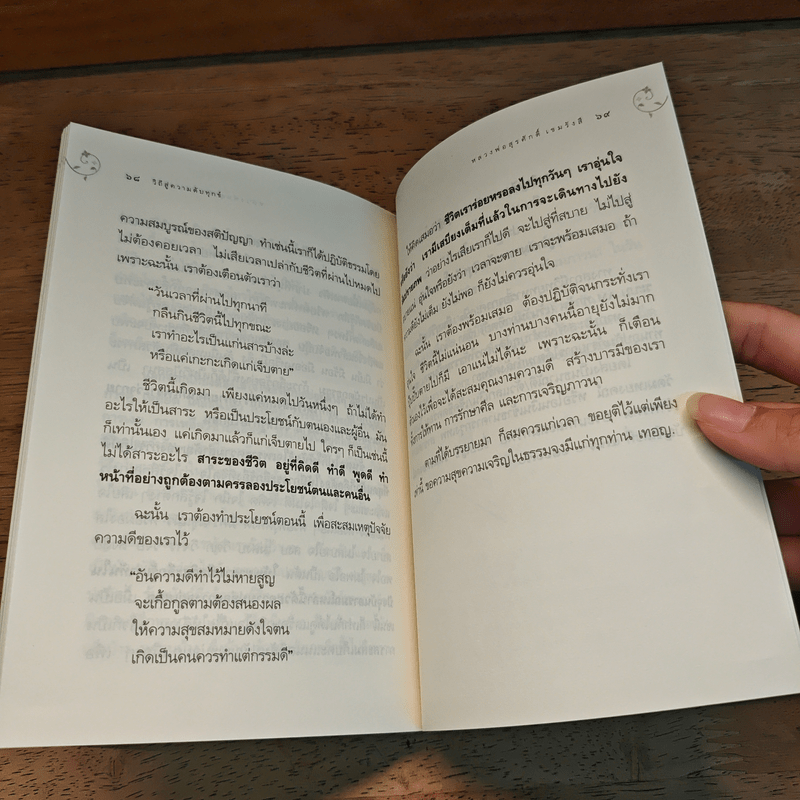 ๖๘ วิถีสู่ความดับทุกข์
ความสมบูรณ์ของสติปัญญา ทำเช่นนี้เราก็ได้ปฏิบัติธรรมโดย
ไม่ต้องคอยเวลา ไม่เสียเวลาเปล่ากับชีวิตที่ผ่านไปหมดไป
เพราะฉะนั้น เราต้องเตือนตัวเราว่า
"วันเวลาที่ผ่านไปทุกนาที
กลืนกินชีวิตนี้ไปทุกขณะ
เราทำอะไรเป็นแก่นสารบ้างล่ะ
หรือแค่เกะกะเกิดแก่เจ็บตาย"
ชีวิตนี้เกิดมา เพียงแค่หมดไปวันหนึ่งๆ ถ้าไม่ได้ทำ
อะไรให้เป็นสาระ หรือเป็นประโยชน์กับตนเองและผู้อื่น มัน
ก็เท่านั้นเอง แค่เกิดมาแล้วก็แก่เจ็บตายไป ใครๆ ก็เป็นเช่นนี้
ไม่ได้สาระอะไร สาระของชีวิต อยู่ที่คิดดี ทำดี พูดดี ทำ
หน้าที่อย่างถูกต้องตามครรลองประโยชน์ตนและคนอื่น
ฉะนั้น เราต้องทำประโยชน์ตอนนี้ เพื่อสะสมเหตุปัจจัย
ความดีของเราไว้
"อันความดีทำไว้ไม่หายสูญ
จะเกื้อกูลตามต้องสนองผล
ให้ความสุขสมหมายดังใจตน
เกิดเป็นคนควรทำแต่กรรมดี"
หลวงพ่อสุรศักดิ์ เขมรังสี ๖๙
ให้คิดเสมอว่า ชีวิตเราร่อยหรอลงไปทุกวันๆ เราอุ่นใจ
เรามีเสบียงเต็มที่แล้วในการจะเดินทางไปยัง
ว่าอย่างไรเสียเราก็ไปดี จะไปสู่ที่สบาย ไม่ไปสู่
อุ่นใจหรือยังว่า เวลาจะตาย เราจะพร้อมเสมอ ถ้า
ยังไม่เต็ม ยังไม่พอ ก็ยังไม่ควรอุ่นใจ
ฉะนั้น เราต้องพร้อมเสมอ ต้องปฏิบัติจนกระทั่งเรา
ชีวิตนี้ไม่แน่นอน บางท่านบางคนนี้อายุยังไม่มาก
ตายไปก็มี เอาแน่ไม่ได้นะ เพราะฉะนั้น ก็เตือน
ไว้เพื่อจะได้สะสมคุณงามความดี สร้างบารมีของเรา
การให้ทาน การรักษาศีล และการเจริญภาวนา
ตามที่ได้บรรยายมา ก็สมควรแก่เวลา ขอยุติไว้แต่เพียง
เท่านี้ ขอความสุขความเจริญในธรรมจงมีแก่ทุกท่าน เทอญ.